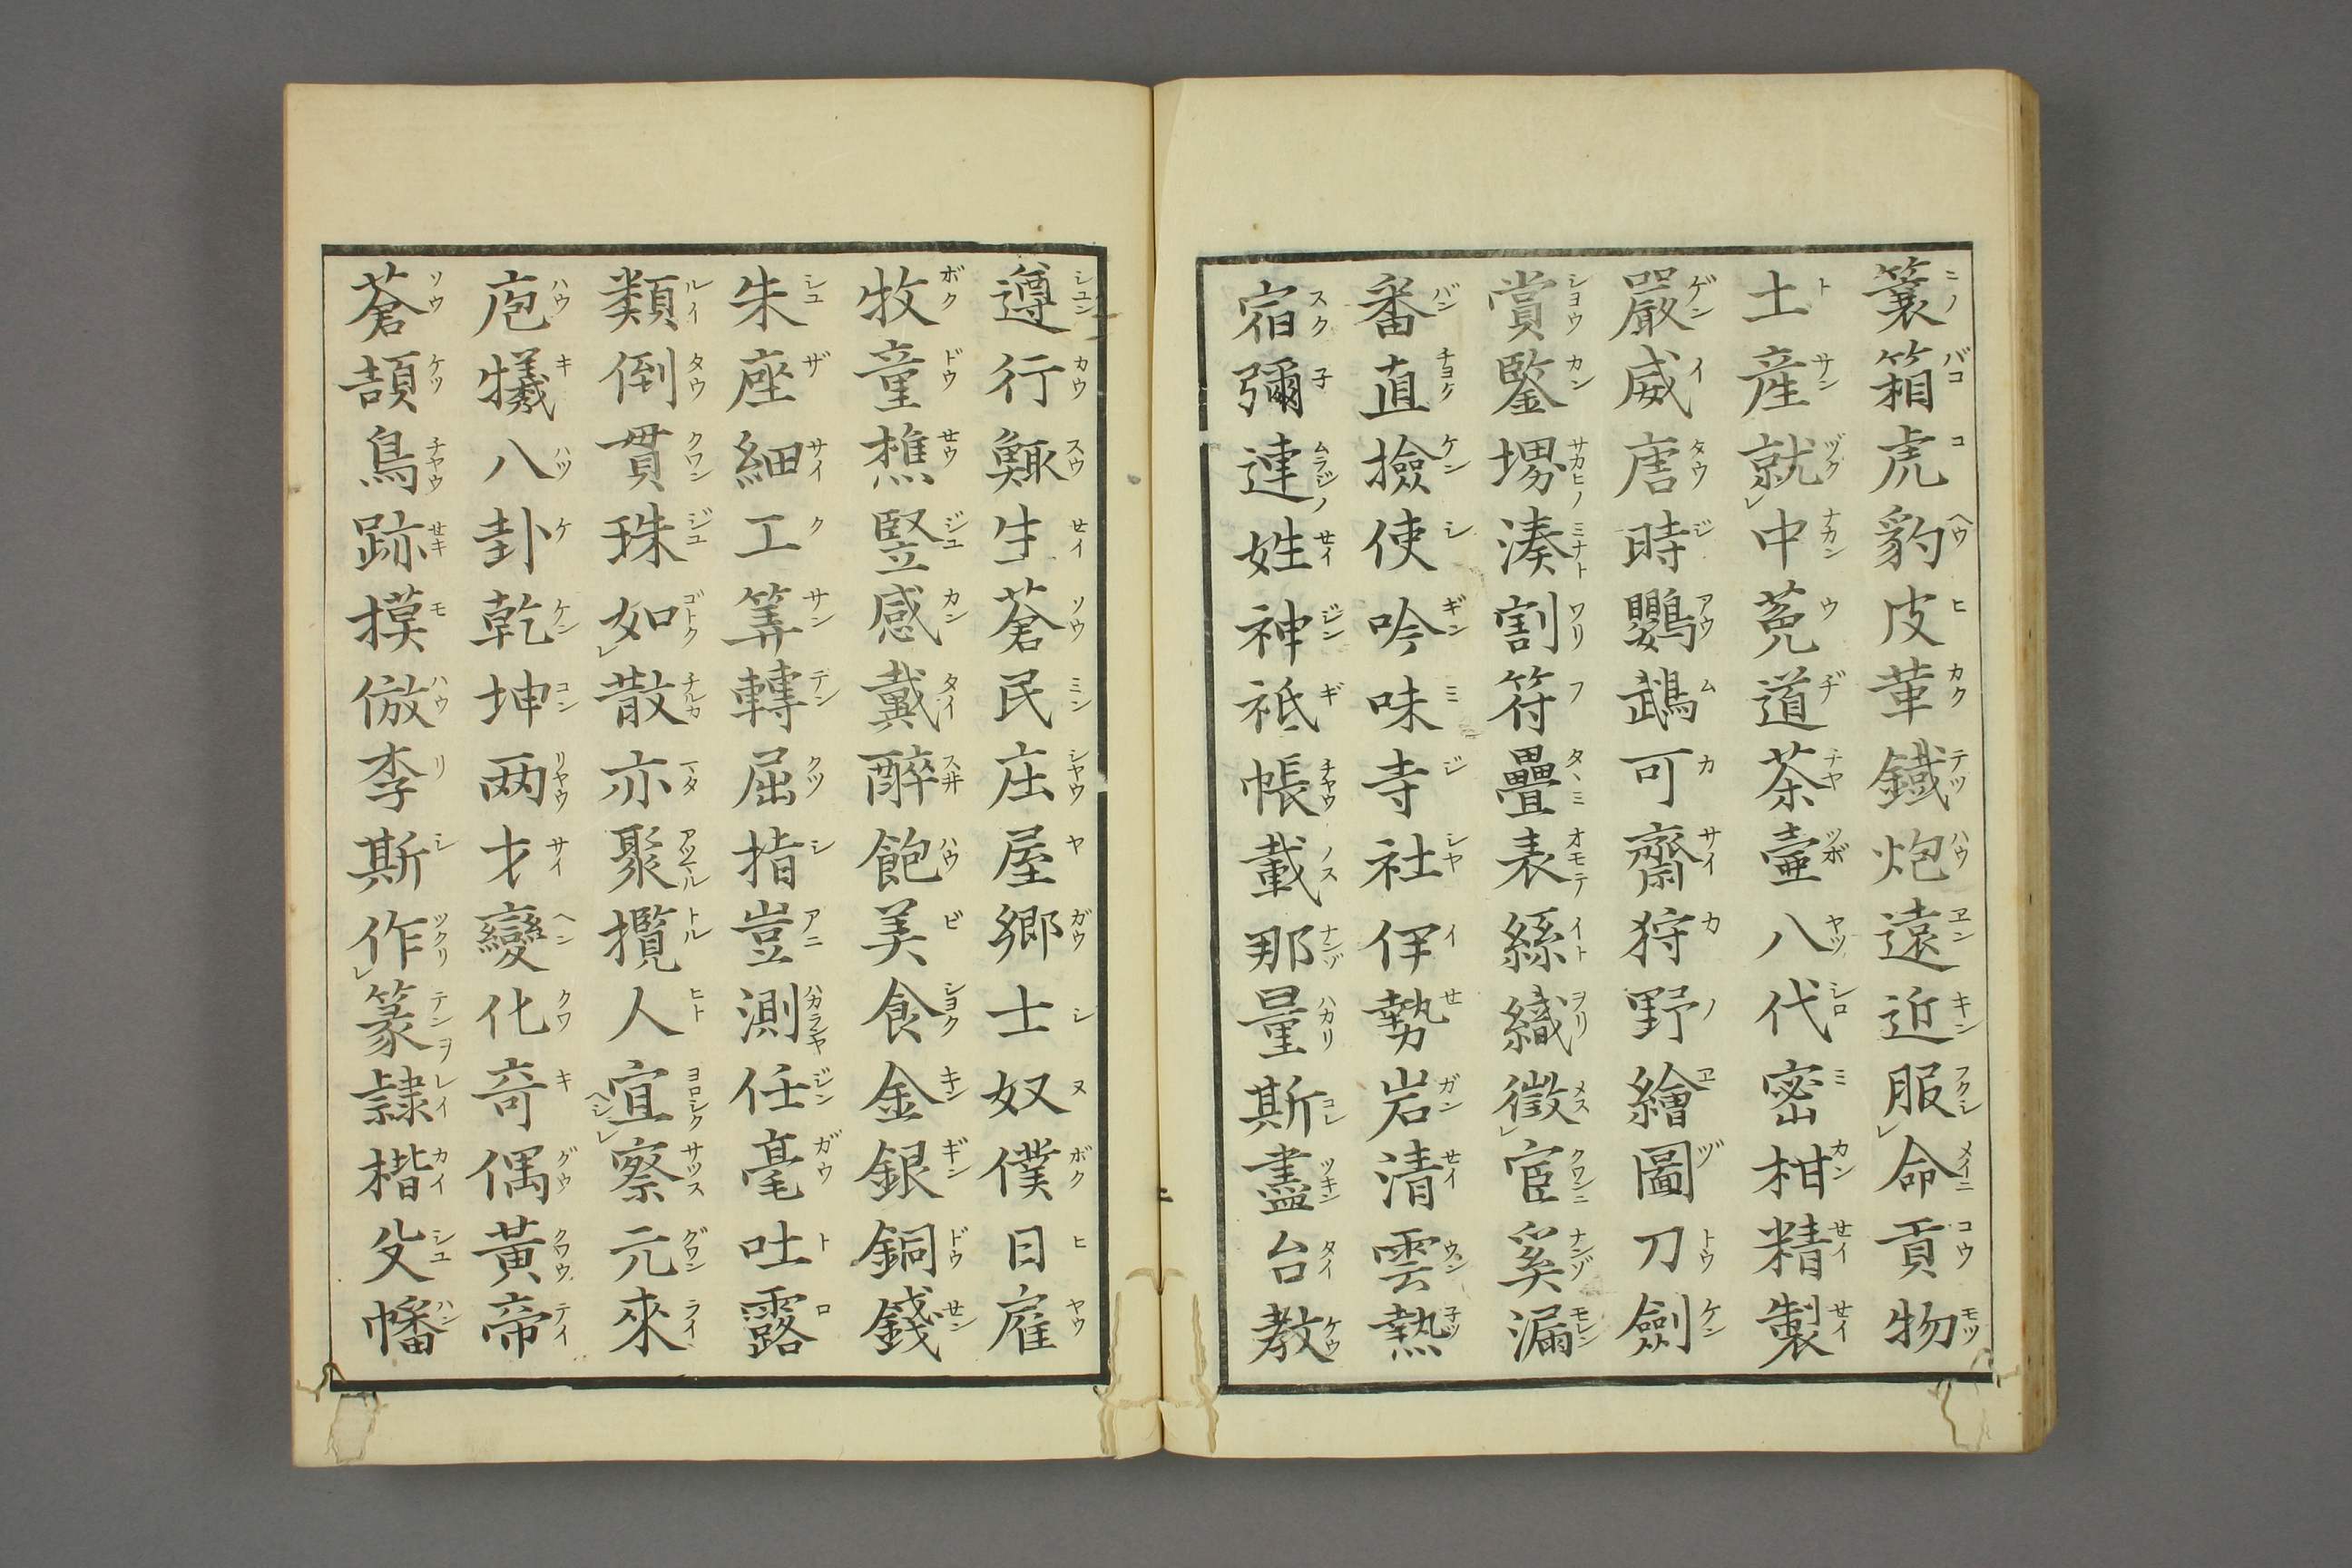 簑箱虎豹皮革鐵炮遠近服命貢物
土産就中菟道茶壷八代密柑精製
嚴威唐時鸚鵡可齋狩野繪圖刀劍
賞鑒堺湊割符疊表絲織徴宦奚漏
番直撿使吟味寺社伊勢岩清雲熱
宿彌連姓神祗帳載那量斯盡台教
遵行鯫生蒼民庄屋郷士奴僕日雇
牧童樵豎感戴醉飽美食金銀銅錢
朱座細工筭轉屈指豈測任毫吐露
類倒貫珠如散亦聚攬人宜察元來
庖犧八卦乾坤两才變化竒偶黃帝
蒼頡鳥跡摸倣李斯作篆隷楷殳幡